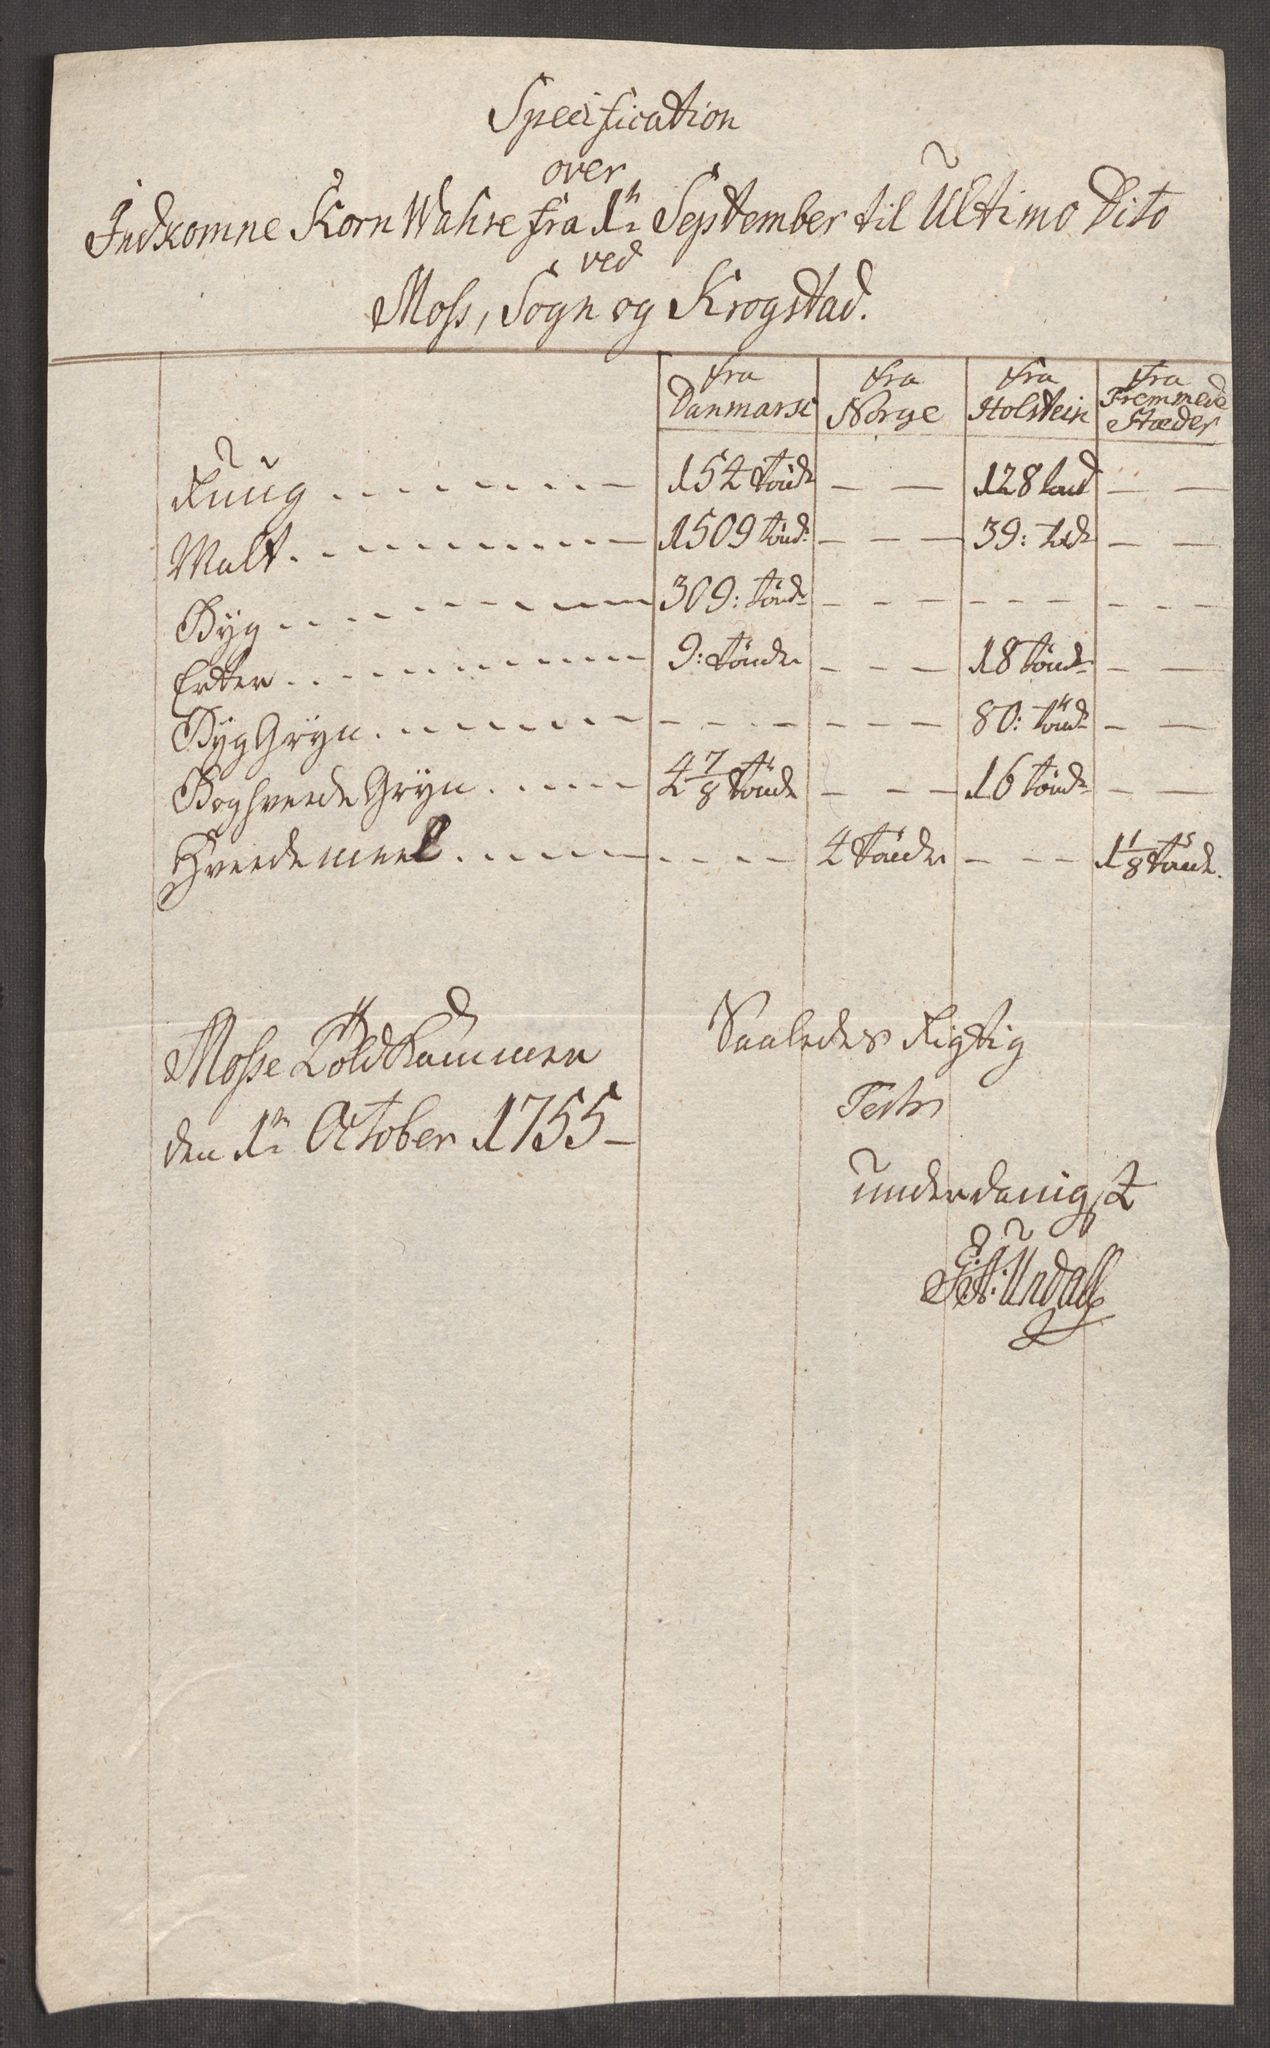 Specification
over
Indkomne Korn Wahre fra 1te September til Ultimo Dito
ved
Moss, Sogn og Krogstad.
fra Danmark fra Norge fra Holstein fra Fremmede Stæder
Ruug 154 tönde — — 128 tönd — —
Malt 1509 tönd: — — — 39: tönd — —
Byg 309: tönde — — — — — — — — —
Erter 9: tönder — — — 18 tönde — —
Byg Gryn — — — — — — — 80: tönde — —
Boghveede Gryn 4 7/8 tönde — — — 16 tönde — —
Hveede meel — — — 4 tönder — — — 1 1/8 tönde.
Mosse Töld Kammer
den 1te October 1755 –
Saaledes Rigtig
Testr
underdanigst
Undall